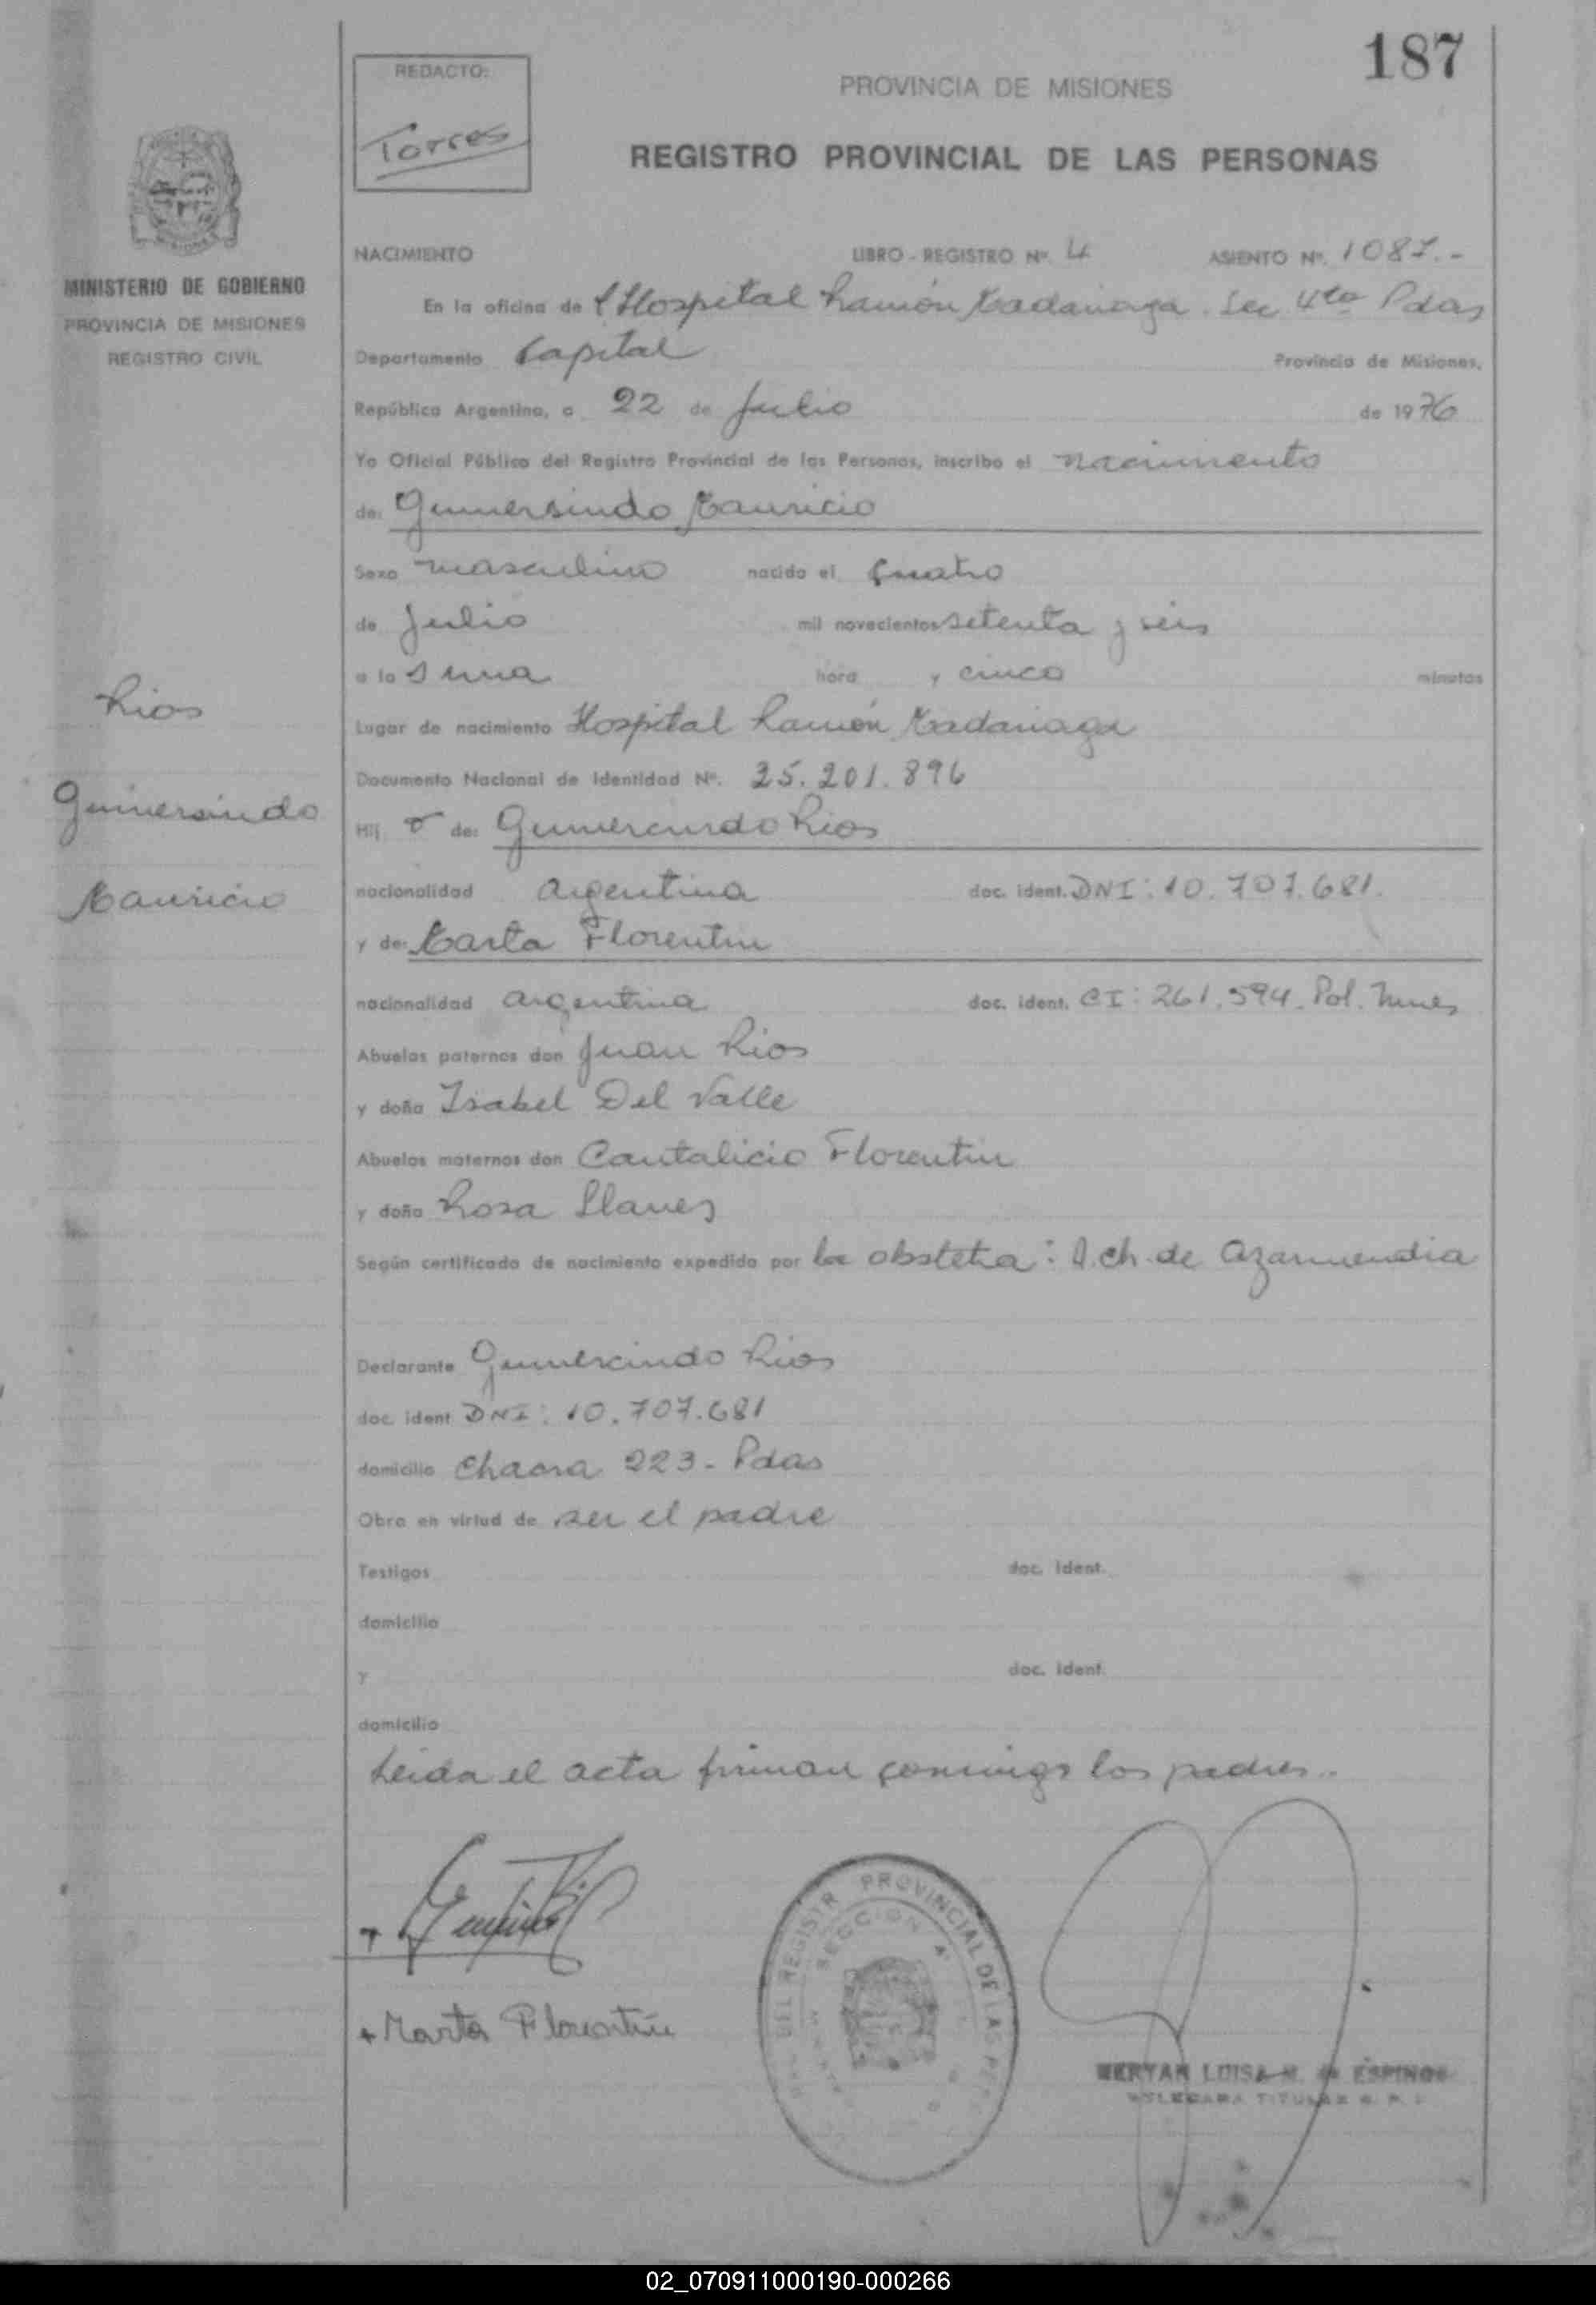 187
REDACTO:
Torres
PROVINCIA DE MISIONES
REGISTRO PROVINCIAL DE LAS PERSONAS
MINISTERIO DE GOBIERNO
PROVINCIA DE MISIONES
REGISTRO CIVIL
NACIMIENTO LIBRO - REGISTRO Nº. 4 ASIENTO Nº. 1087.-
En la oficina de Hospital Ramón Madariaga. Sec 4ta Pdas
Departamento Capital Provincia de Misiones,
República Argentina, a 22 de Julio de 1976
Yo Oficial Público del Registro Provincial de las Personas, inscribo el nacimiento
de: Gumersindo Mauricio
Sexo masculino nacido el cuatro
de Julio mil novecientos setenta y seis
a la una hora y cinco minutos
Rios
Lugar de nacimiento Hospital Ramón Madariaga
Documento Nacional de Identidad Nº. 25.201.896
Gumersindo
Hij o de: Gumercindo Rios
Mauricio
nacionalidad argentina doc. ident. DNI: 10.707.681.
y de: Marta Florentin
nacionalidad argentina doc. ident. CI: 261.594. Pol. Mnes
Abuelos paternos don Juan Rios
y doña Isabel Del Valle
Abuelos maternos don Cantalicio Florentin
y doña Rosa Llanes
Según certificado de nacimiento expedido por la obstetra: ch. de Azarmendia
Declarante Gumercindo Rios
doc. ident DNI: 10.707.681
domicilio Chacra 223 - Pdas
Obra en virtud de ser el padre
Testigos doc. ident.
domicilio
y doc. ident.
domicilio
Leida el acta firman conmigo los padres.-
DEL REGISTR PROVINCIAL DE LAS PER
SECCION 4
+ Marta Florentin
LUISA M. de ESPINOS
TITULAR
02_070911000190-000266